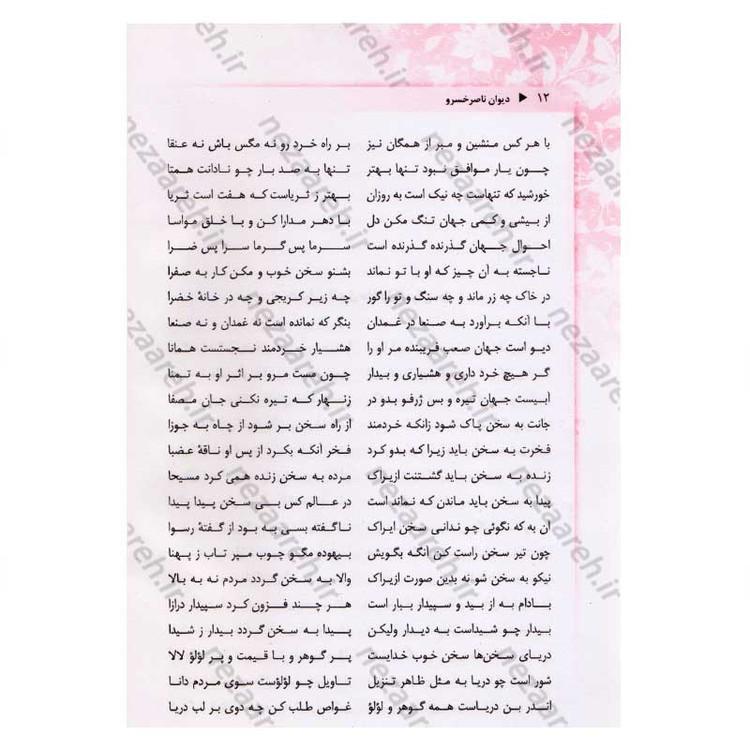 ۱۲ ▶ دیوان ناصرخسرو
با هر کس منشین و مبر از همگان نیز بر راه خرد رو نه مگس باش نه عنقا
چون یار موافق نبود تنها بهتر تنها به صد بار چو نادانت همتا
خورشید که تنهاست چه نیک است به روزان بهتر ز ثریاست که هفت است ثریا
از بیشی و کمی جهان تنگ مکن دل با دهر مدارا کن و با خلق مواسا
احوال جهان گذرنده گذرنده است سرما پس گرما سرا پس ضرا
ناجسته به آن چیز که او با تو نماند بشنو سخن خوب و مکن کار به صفرا
در خاک چه زر ماند و چه سنگ و تو را گور چه زیر کریجی و چه در خانهٔ خضرا
با آنکه برآورد به صنعا در غمدان بنگر که نمانده است نه غمدان و نه صنعا
دیو است جهان صعب فریبنده مر او را هشیار خردمند نجستست همانا
گر هیچ خرد داری و هشیاری و بیدار چون مست مرو بر اثر او به تمنا
آبیست جهان تیره و بس ژرفو بدو در زنهار که تیره نکنی جان مصفا
جانت به سخن پاک شود زانکه خردمند از راه سخن بر شود از چاه به جوزا
فخرت به سخن باید زیرا که بدو کرد فخر آنکه بکرد از پس او ناقهٔ عضبا
زنده به سخن باید گشتنت ازیراک مرده به سخن زنده همی کرد مسیحا
پیدا به سخن باید ماندن که نماند است در عالم کس بی سخن پیدا پیدا
آن به که نگوئی چو ندانی سخن ایراک ناگفته بسی به بود از گفتهٔ رسوا
چون تیر سخن راست کن آنگه بگویش بیهوده مگو چوب مپر تاب ز پهنا
نیکو به سخن شو نه بدین صورت ازیراک والا به سخن گردد مردم نه به بالا
بادام به از بید و سپیدار ببار است هر چند فزون کرد سپیدار درازا
بیدار چو شیداست به دیدار ولیکن پیدا به سخن گردد بیدار ز شیدا
دریای سخن‌ها سخن خوب خدایست پر گوهر و با قیمت و پر لؤلؤ لالا
شور است چو دریا به مثل ظاهر تنزیل تاویل چو لؤلؤست سوی مردم دانا
اندر بن دریاست همه گوهر و لؤلؤ غواص طلب کن چه دوی بر لب دریا
nezaareh.ir